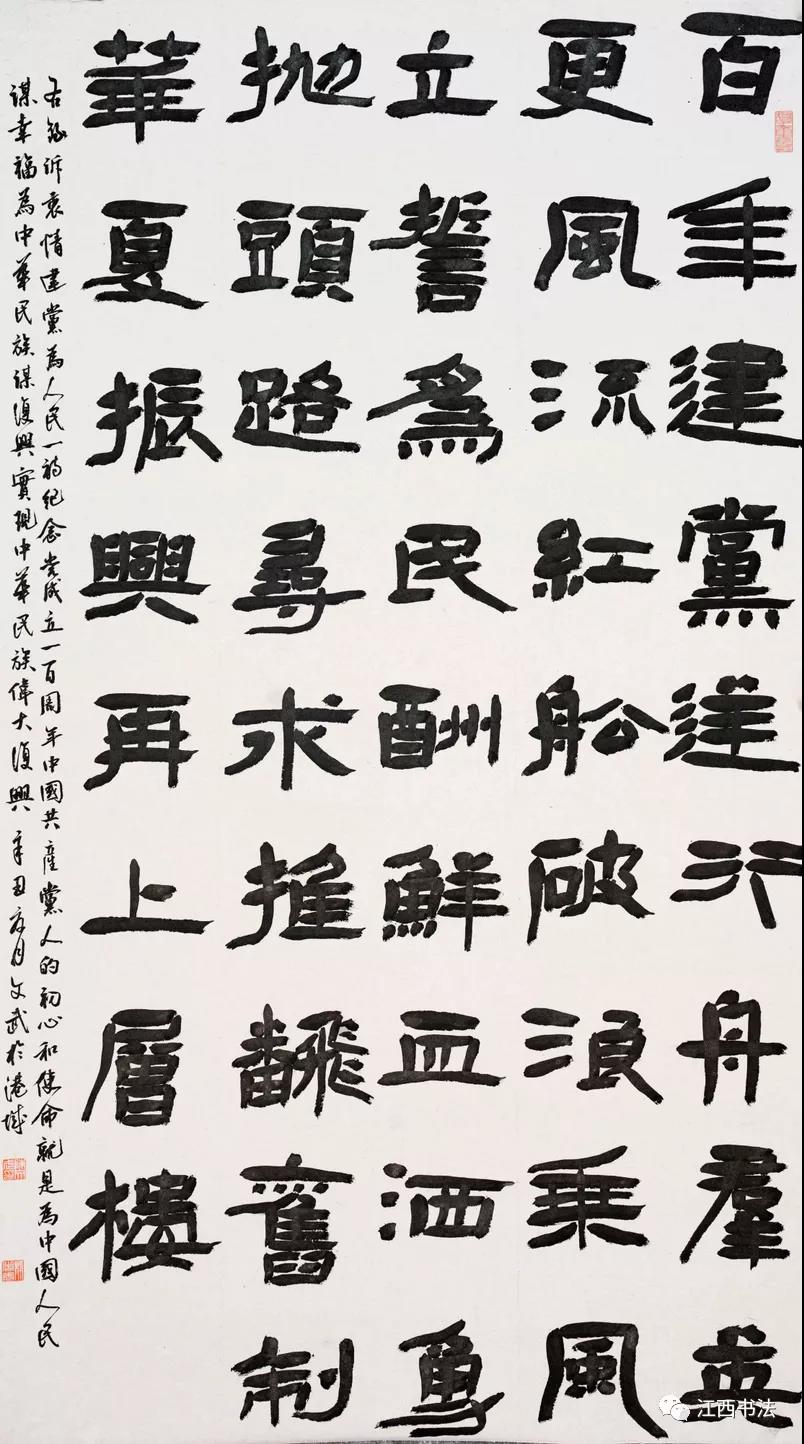 百年建黨逆行舟羣英
更風流紅舩破浪乘風
立誓爲民酬鮮血洒勇
抛頭路尋求推飜舊制
華夏振興再上層樓
右錄訴衷情建黨為人民一詞紀念黨成立一百周年中國共產黨人的初心和使命就是為中國人民
謀幸福為中華民族謀復興實現中華民族偉大復興 辛丑月文武於港城
江西书法